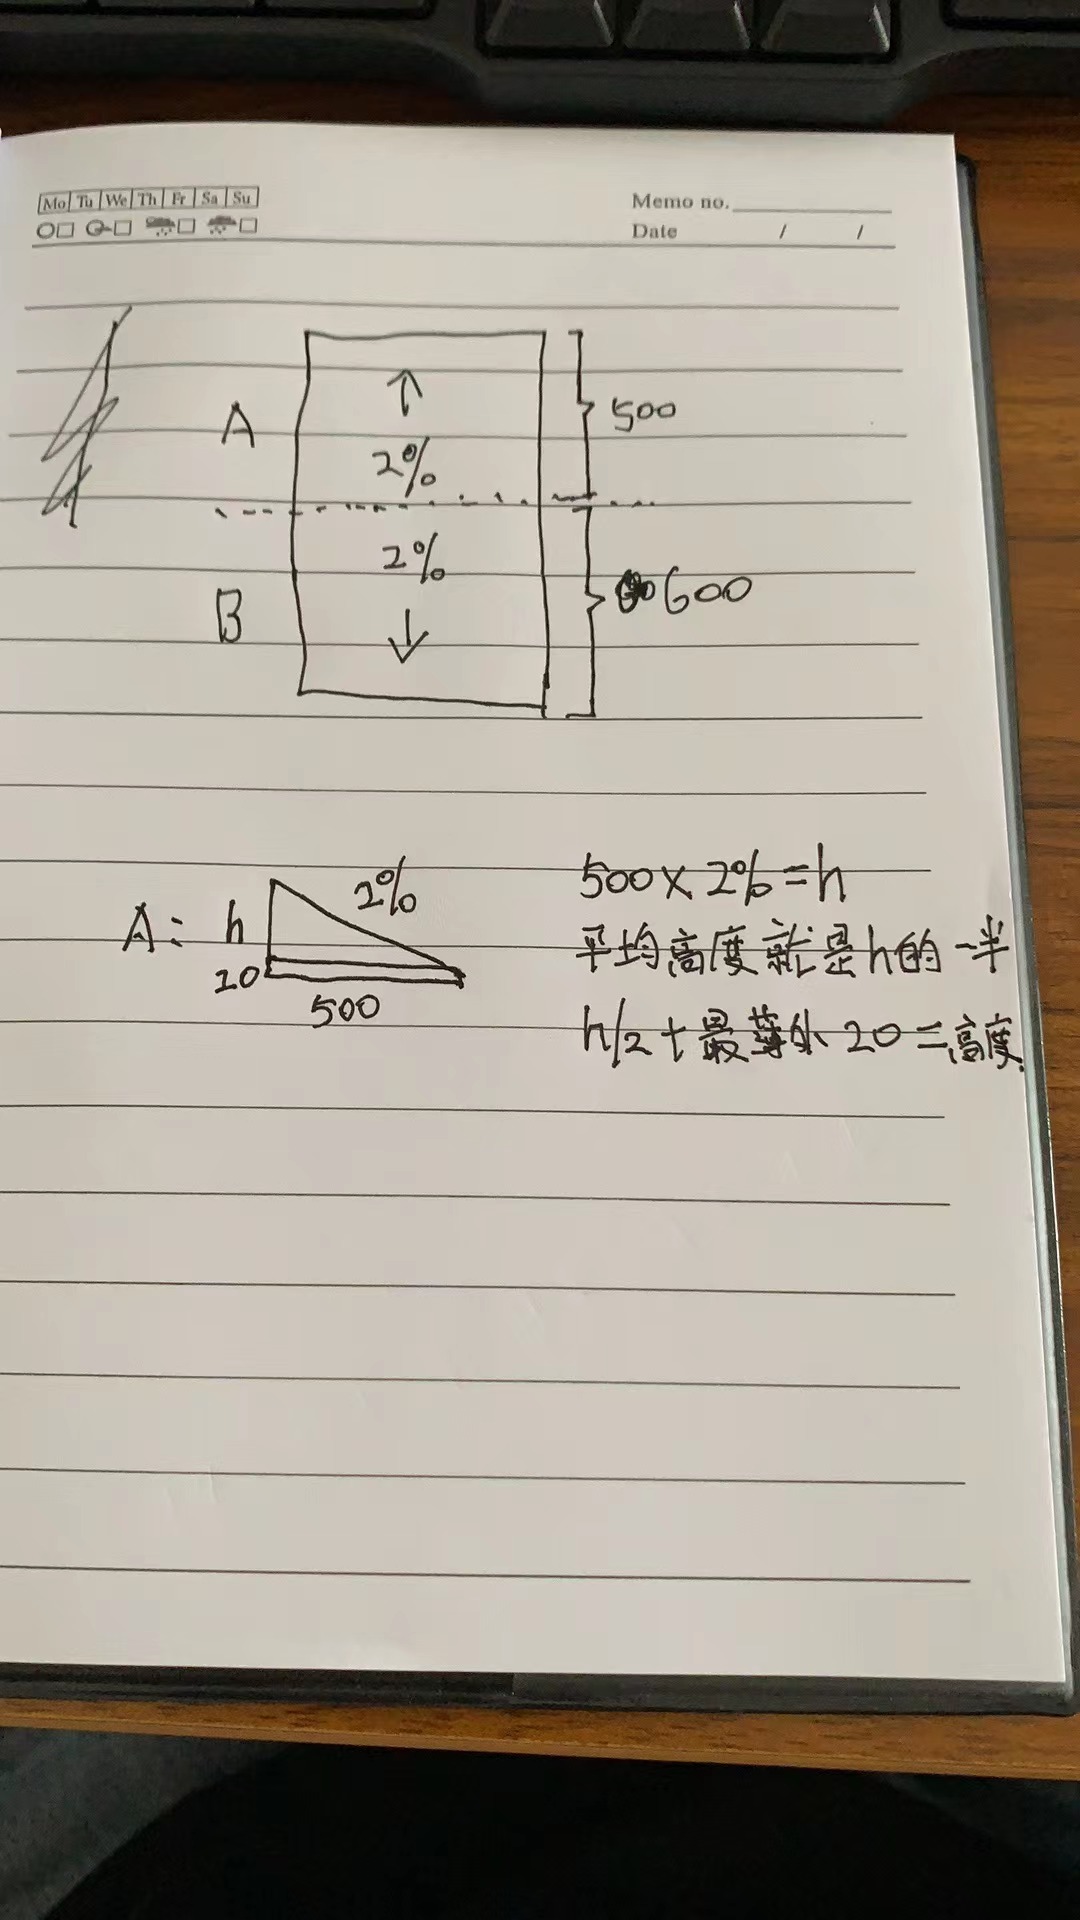 Mo Tu We Th Fr Sa Su
Memo no.
Date / /
A
2%
500
2%
B
600
A: h 2%
20
500
500×2%=h
平均高度就是h的一半
h/2+最薄处20=高度.